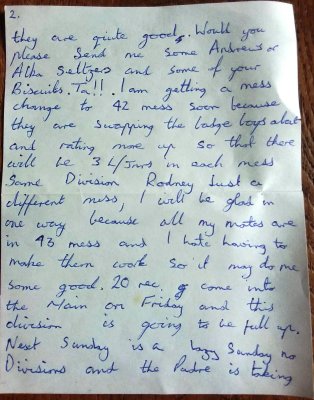 2.
they are quite good. Would you
please send me some Andrews or
Alka Seltzers and some of your
Biscuits. Ta!! I am getting a mess
change to 42 mess soon because
they are swapping the badge boys about
and rating more up so that there
will be 3 L/Jnrs in each mess
Same Division Rodney Just a
different mess, I will be glad in
one way because all my mates are
in 43 mess and I hate having to
make them work so it may do me
some good. 20 rec. come into
the Main on Friday and this
division is going to be full up.
Next Sunday is a lazy Sunday no
Divisions and the Padre is taking